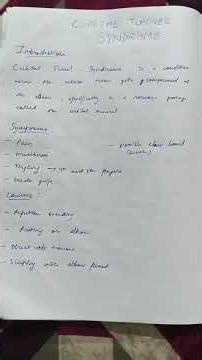 CUBITAL TUNNEL
SYNDROME
Introduction
Cubital Tunnel Syndrome is a condition
when the ulnar nerve gets compressed at
the elbow, specifically in a narrow passage
called the cubital tunnel
Symptoms :
- Pain
- Numbness
- Tingling → in and the fingers
- Weak grip
- possible claw hand
Causes :
- Repetitive bending
- on elbow
- Direct trauma
- Sleeping with elbow flexed